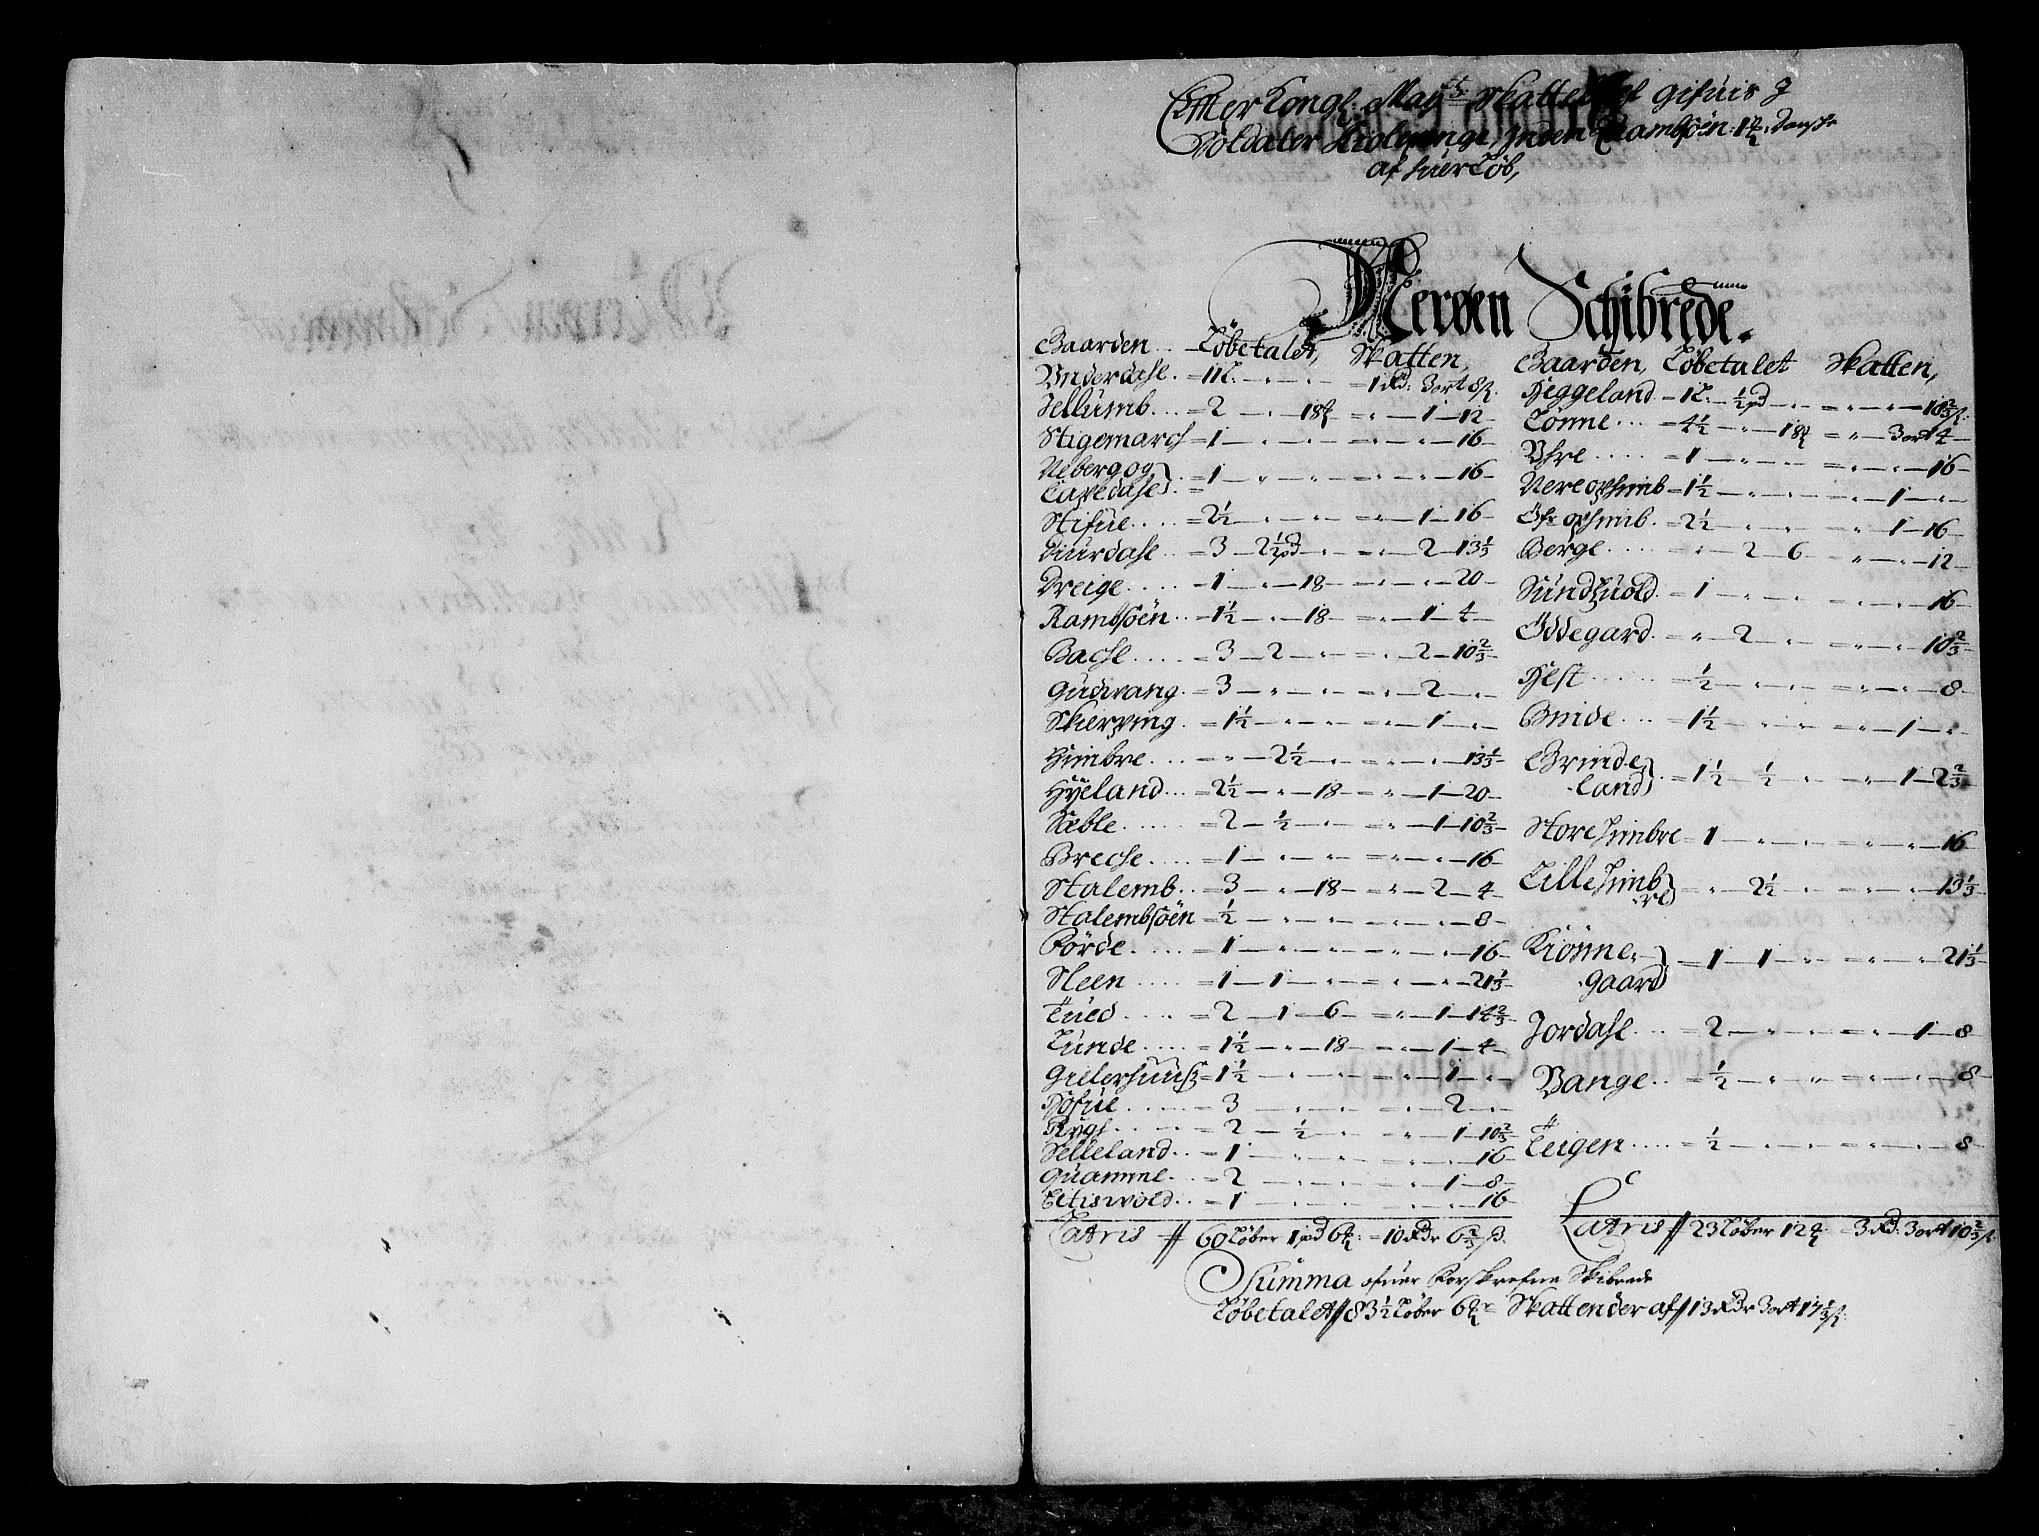 Effter Kongl: May:ts Skattebref gifuis J
Voldaler Holminge, Inden Rambsöen: 1 ℔ Dansch
af huer Löb,
Nerøen Schibrede.
Gaarden Löbetalet, Skatten,
Underdahl. = 1 L. - „ - „ = 1 Rd: 3 ort 8 ß
Jellumb... = 2 - „ - 18 ℔ = „ - 1 - 12
Stigemarch = 1 - „ - „ = „ - „ - 16
Neberg og
Lavedahl = 1 - „ - „ = „ - „ - 16
Stifue.... = 2½ - „ - „ = „ - 1 - 16
Diurdahl.. = 3 - 2½ pd - „ = „ - 2 - 13⅓
Dreige.... = 1 - „ - 18 = „ - „ - 20
Rambsöen.. = 1½ - „ - 18 = „ - 1 - 4
Bache..... = 3 - 2 - „ = „ - 2 - 10⅔
Gudvang. = 3 - „ - „ = „ - 2 - „
Skierping. = 1½ - „ - „ = „ - 1 - „
Himbre.... = „ - 2½ - „ = „ - „ - 13⅓
Hyeland... = 2½ - „ - 18 = „ - 1 - 20
Næble..... = 2 - ½ - „ = „ - 1 - 10⅔
Breche.... = 1 - „ - „ = „ - „ - 16
Stalemb.. = 3 - „ - 18 = „ - 2 - 4
Stalembsöen = ½ - „ - „ = „ - „ - 8
Förde..... = 1 - „ - „ = „ - „ - 16
Steen..... = 1 - 1 - „ = „ - „ - 21⅓
Tued...... = 2 - 1 - 6 = „ - 1 - 14⅔
Lunde..... = 1½ - „ - 18 = „ - 1 - 4
Gielerhuuss = 1½ - „ - „ = „ - 1 - „
Hofue..... = 3 - „ - „ = „ - 2 - „
Rygh...... = 2 - ½ - „ = „ - 1 - 10⅔
Selleland.. = 1 - „ - „ = „ - „ - 16
Quamme.. = 2 - „ - „ = „ - 1 - 8
Eltiswold.. = 1 - „ - „ = „ - „ - 16
Latris // 60 Löber 1 pd 6 ℔: = 10 Rdr 6⅔ ß
Gaarden, Löbetalet Skatten,
Heggeland = 1 L. - ½ pd - „ = „ - „ - 18⅔ ß.
Tönne.... = 4½ - „ - 18 ℔ = „ - 3 ort 4
Uhre..... = 1 - „ - „ = „ - „ - 16
Nereopheimb = 1½ - „ - „ = „ - 1 - „
Öfr opheimb. = 2½ - „ - „ = „ - 1 - 16
Berge..... = „ - 2 - 6 = „ - „ - 12
Sundhuold = 1 - „ - „ = „ - „ - 16
Ödegard. = „ - 2 - „ = „ - „ - 10⅔
Hest...... = ½ - „ - „ = „ - „ - 8
Bnide.... = 1½ - „ - „ = „ - 1 - „
Grinde
land = 1½ - ½ - „ = „ - 1 - 2⅔
Storehimbre = 1 - „ - „ = „ - „ - 16
Lillehimb
re = „ - 2½ - „ = „ - „ - 13⅓
Kiönne
gaard = 1 - 1 - „ = „ - „ - 21⅓
Jordahl... = 2 - „ - „ = „ - 1 - 8
Vange.. = ½ - „ - „ = „ - „ - 8
Teigen.... = ½ - „ - „ = „ - „ - 8
Latris // 23 Löber 12 ℔ = 3 Rd: 3 ort 10⅔ ß
Summa ofuer Forskrefne Skibrede
Löbetalet // 83½ Löber 6 ℔ Skatten der af // 13 Rdr 3 ort 17⅓ ß